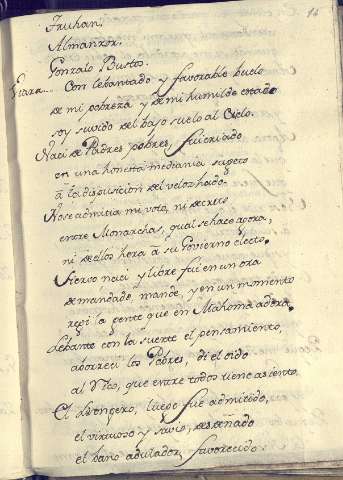 14
Fruhan,
Almanzor.
Gonzalo Bustos.
Ziara... Con lebantado y favorable buelo
de mi pobreza y de mi humilde estado
soy suvido del bajo suelo al Cielo.
Naci de Padres pobres, fui criado
en una honesta mediania sugeto
a la disposicion del veloz hado.
No se admitia mi voto, ni decreto
entre Monarchas, qual se hace agora,
ni de ellos hera a su Govierno electo.
Siervo naci y libre fui en un ora
de mandado, mande, y en un momento
regi la gente que en Mahoma adora.
Lebante con la suerte el pensamiento,
aborreci los Pobres, di el oido
al Vicio, que entre todos tiene asiento.
El Lisongero, luego fue admitido,
el virtuoso y savio, desdeñado
el bano adulador, favorecido.